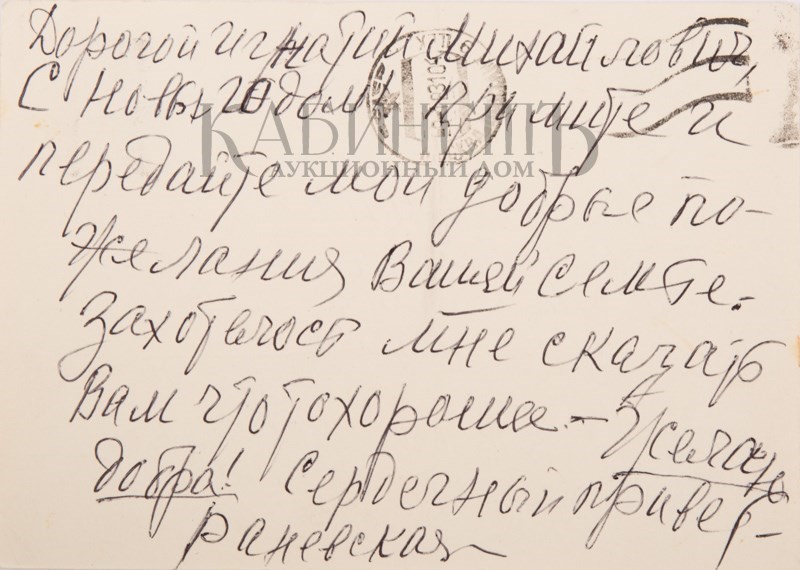 Дорогой Игнатий Михайлович,
С новым годом! Примите и
передайте мои добрые по-
желания Вашей семье.
Захотелось мне сказать
Вам что то хорошее. – Желаю
добра! Сердечный привет –
Раневская
КАБИНЕТЪ
АУКЦИОННЫЙ ДОМ